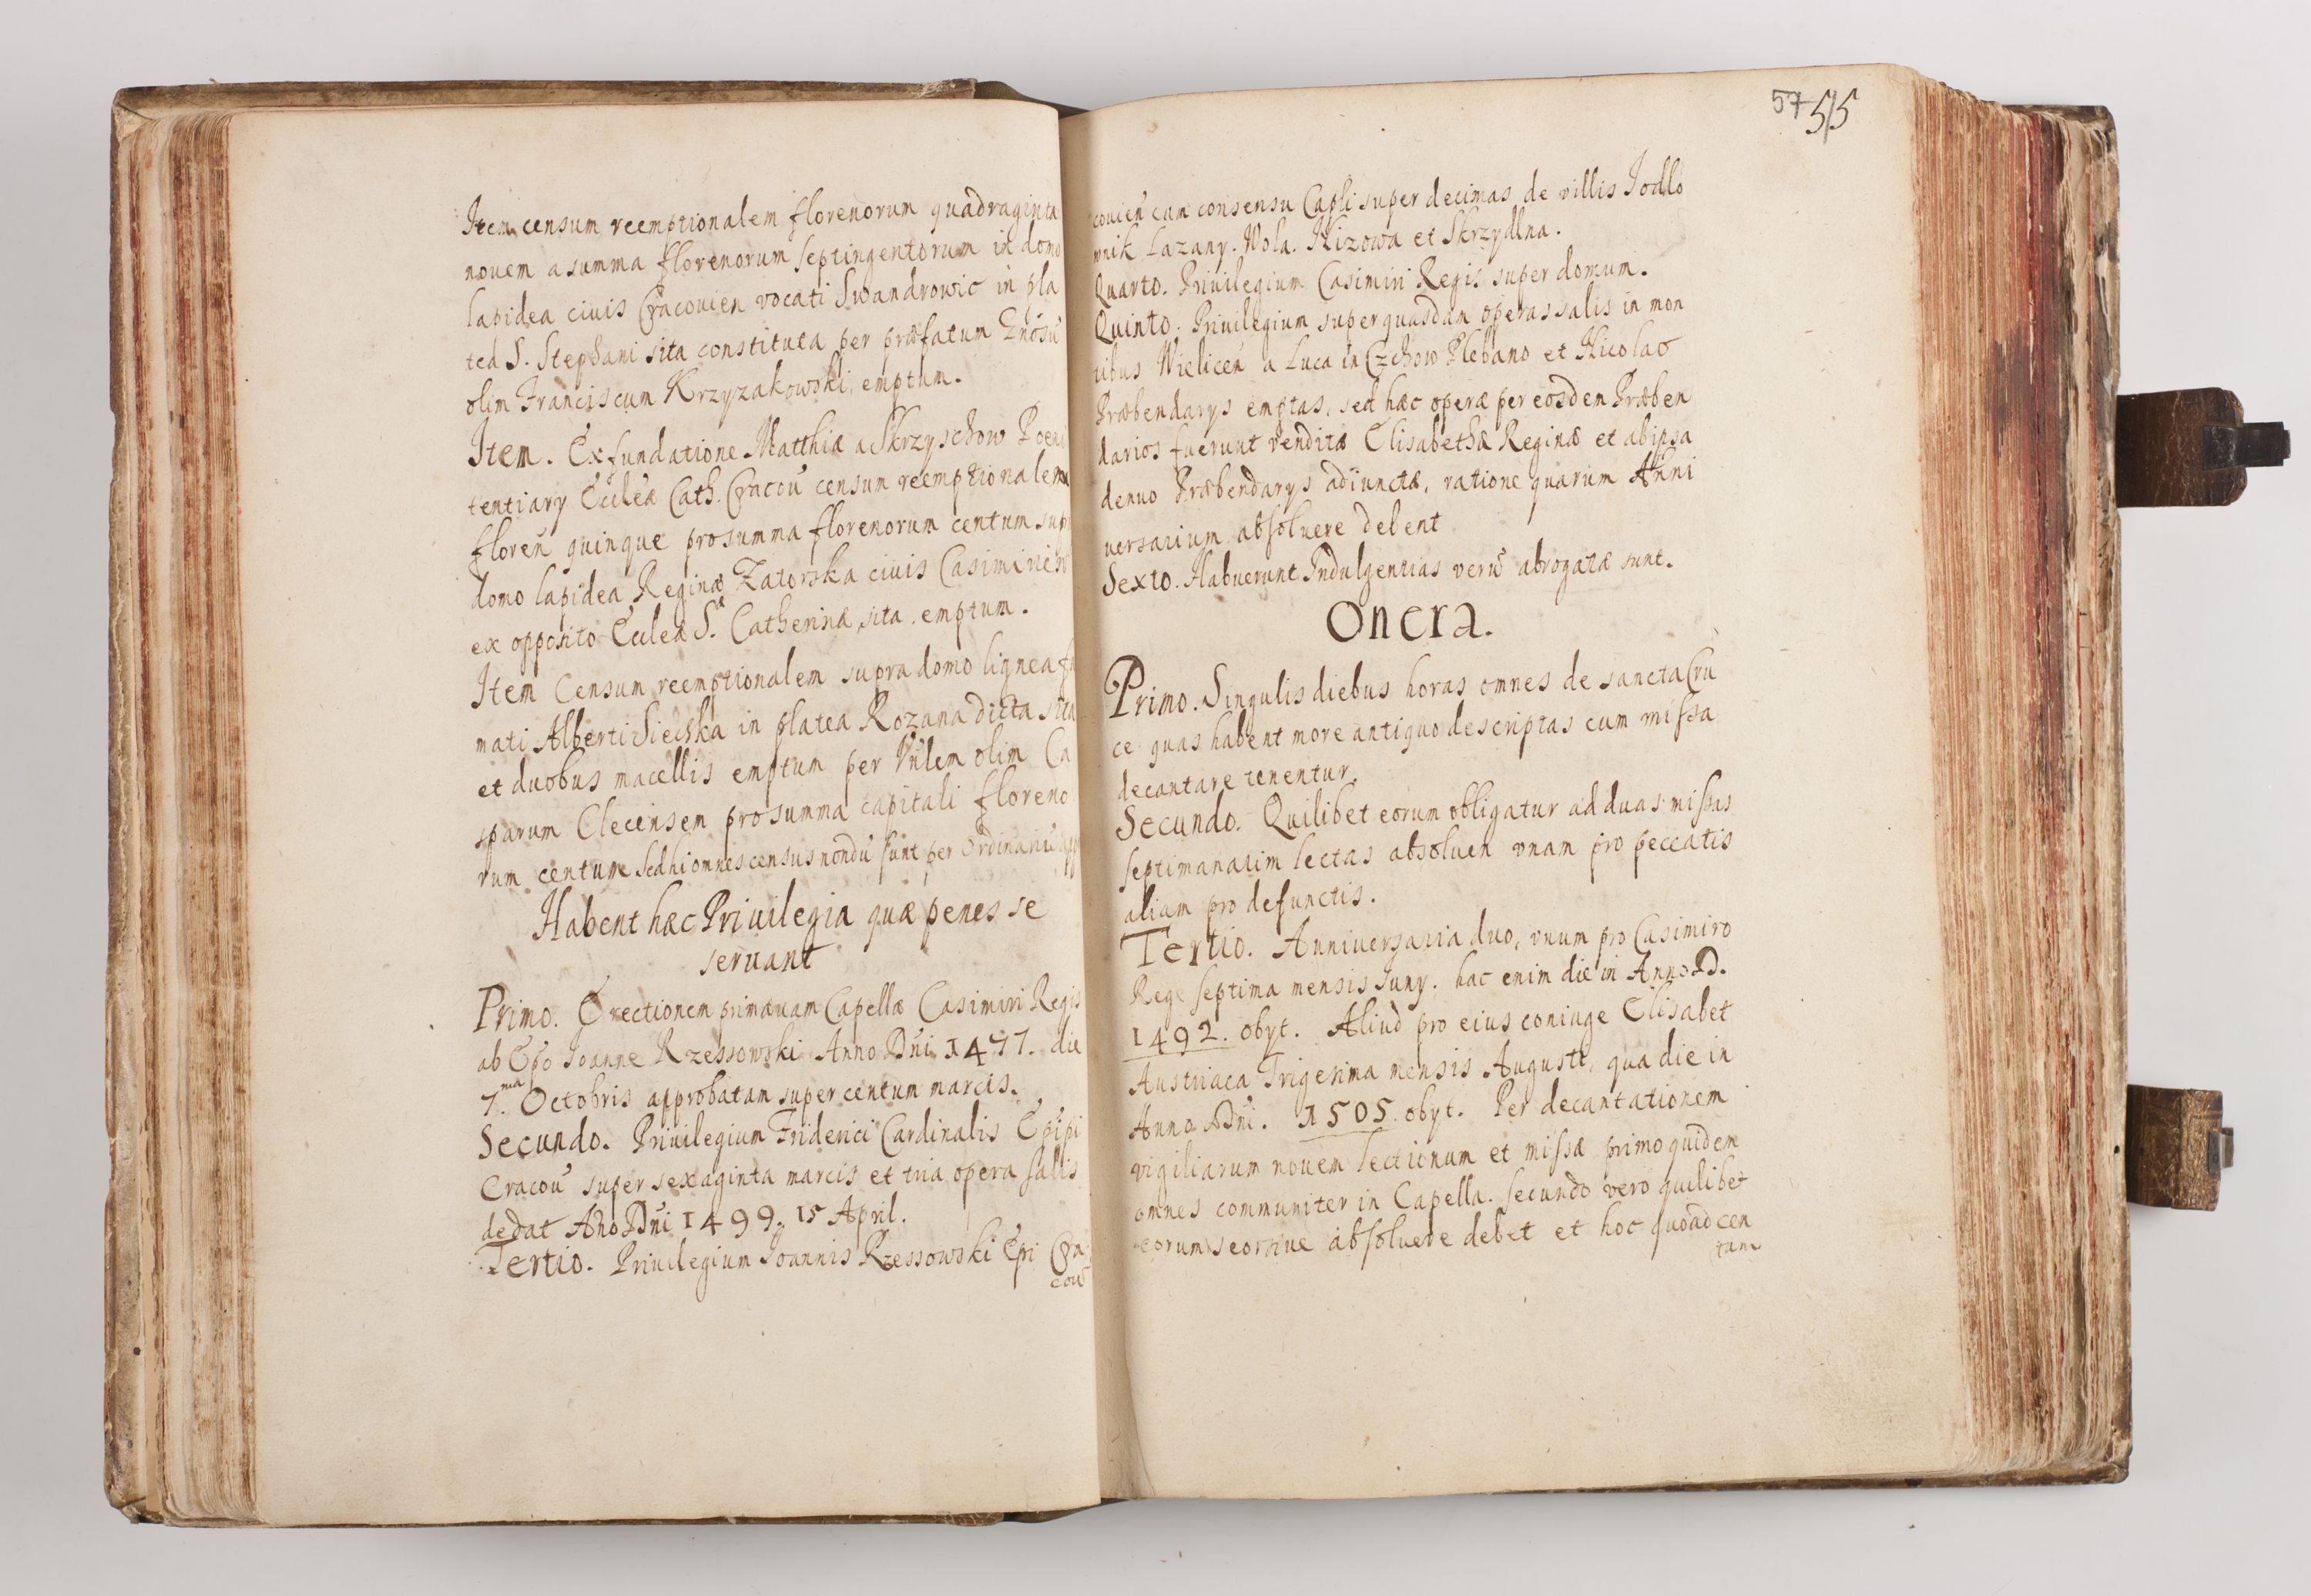 Item censum reemptionalem florenorum quadraginta
nouem a summa florenorum septingentorum in domo
lapidea ciuis Cracouien vocati Swandrowic in pla
tea S. Stephani sita constituta per præfatum
olim Franciscum Krzyzakowski emptum.
Item. Ex fundatione Matthiæ a Skrzyschow Poeni
tentiary Eccleæ Cath. Cracoū censum reemptionalem
floreñ quinque pro summa florenorum centum sup
domo lapidea Reginæ Zatorska ciuis Casimirien
ex opposito Eccleæ S.æ Catherinæ sita emptum.
Item Censum reemptionalem supra domo lignea fa
mati Alberti Siecska in platea Rozana dicta sita
et duobus macellis emptum per Vñlem olim Ca
sparum Clecensem pro summa capitali floreno
rum centum sed hi omnes census nondū sunt per ordinariū
Habent hæc Priuilegia quæ penes se
seruant
Primo. Erectionem primæuam Capellæ Casimiri Regis
ab Epo Ioanne Rzessowski Anno Dñi 1477. die
7.ma Octobris approbatam super centum marcis.
Secundo. Priuilegium Friderici Cardinalis Epipi
Cracoū super sexaginta marcis et tria opera salis
de dat Año Dñi 1499. 15 April.
Tertio. Priuilegium Ioannis Rzessowski Epi Cra
coū
57 55
couieñ cum consensu Capli super decimas de villis Iodlo
wnik Lazany. Wola. Nizowa et Skrzydlna.
Quarto. Priuilegium Casimiri Regis super domum.
Quinto. Priuilegium super quasdam operas salis in mon
tibus Wieliceñ a Luca in Czchow Plebano et Nicolao
Præbendarys emptas, sed hæc operæ per eosdem Præben
darios fuerunt venditæ Elisabethæ Reginæ et ab ipsa
denuo Præbendarys adiunctæ, ratione quarum Anni
uersarium absoluere debent
Sexto. Habuerunt Indulgentias verū abrogatæ sunt.
Onera.
Primo. Singulis diebus horas omnes de sancta Cru
ce quas habent more antiquo descriptas cum missa
decantare tenentur.
Secundo. Quilibet eorum obligatur ad duas missas
septimanatim lectas absoluen vnam pro peccatis
aliam pro defunctis.
Tertio. Anniuersaria duo, vnum pro Casimiro
Rege septima mensis Iuny. hac enim die in Anno D.
1492. obyt. Aliud pro eius coniuge Elisabet
Austriaca Trigesima mensis Augusti, qua die in
Anno Dñi. 1505 obyt. Per decantationem
vigiliarum nouem lectionum et missæ primo quidem
omnes communiter in Capella. secundo vero quilibet
eorum seorsiue absoluere debet et hoc quoad cen
tum